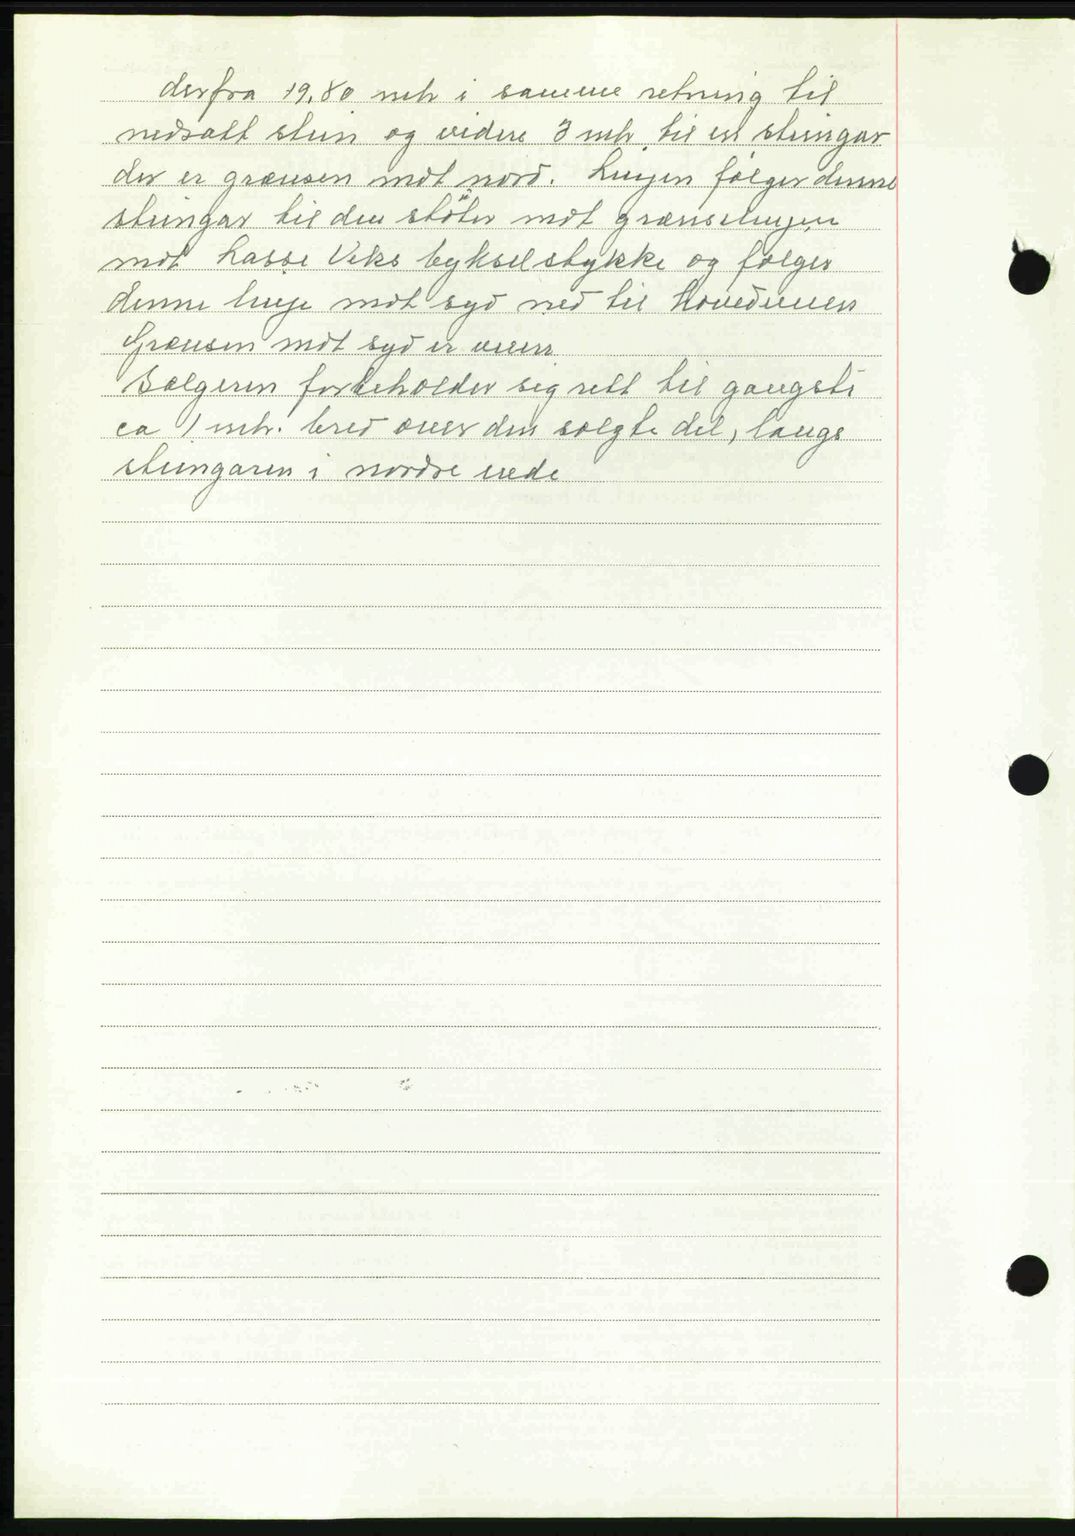 derfra 19,80 mtr i samme retning til
nedsatt stein og videre 3 mtr. til en steingar
der er grænsen mot nord. Linjen følger denne
steingar til den støter mot grænselinjen
mot Lasse Viks bykselstykke og følger
denne linje mot syd ned til Hovedveien
Grænsen mot syd er veien
Sælgeren forbeholder sig rett til gangsti
ca 1 mtr. bred over den solgte del, langs
steingaren i nordre